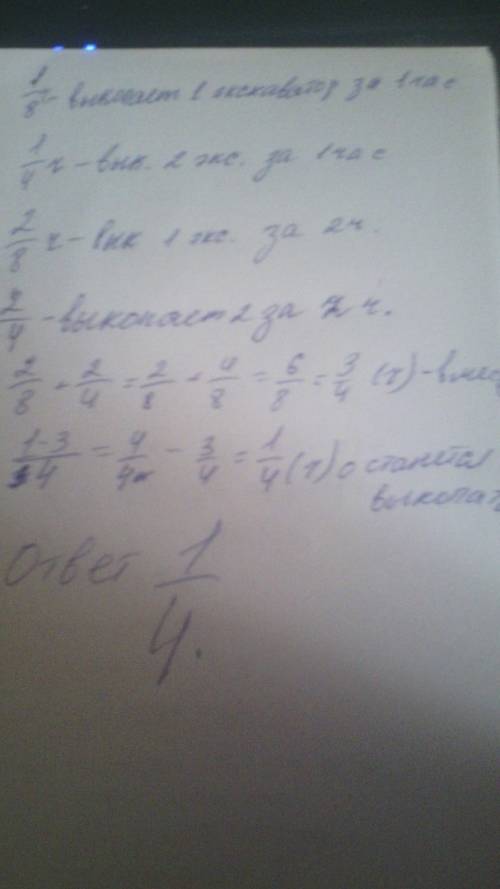 1/8 ч - выкопает 1 экскаватор за 1 час
1/4 ч - вык. 2 экс. за 1 час
2/8 ч - вык 1 экс. за 2ч.
2/4 - выкопает 2 за 2 ч.
2/8 + 2/4 = 2/8 + 4/8 = 6/8 = 3/4 (ч) -
1-3/4 = 4/4 - 3/4 = 1/4 (ч) останется
выкопат
Ответ 1/4.